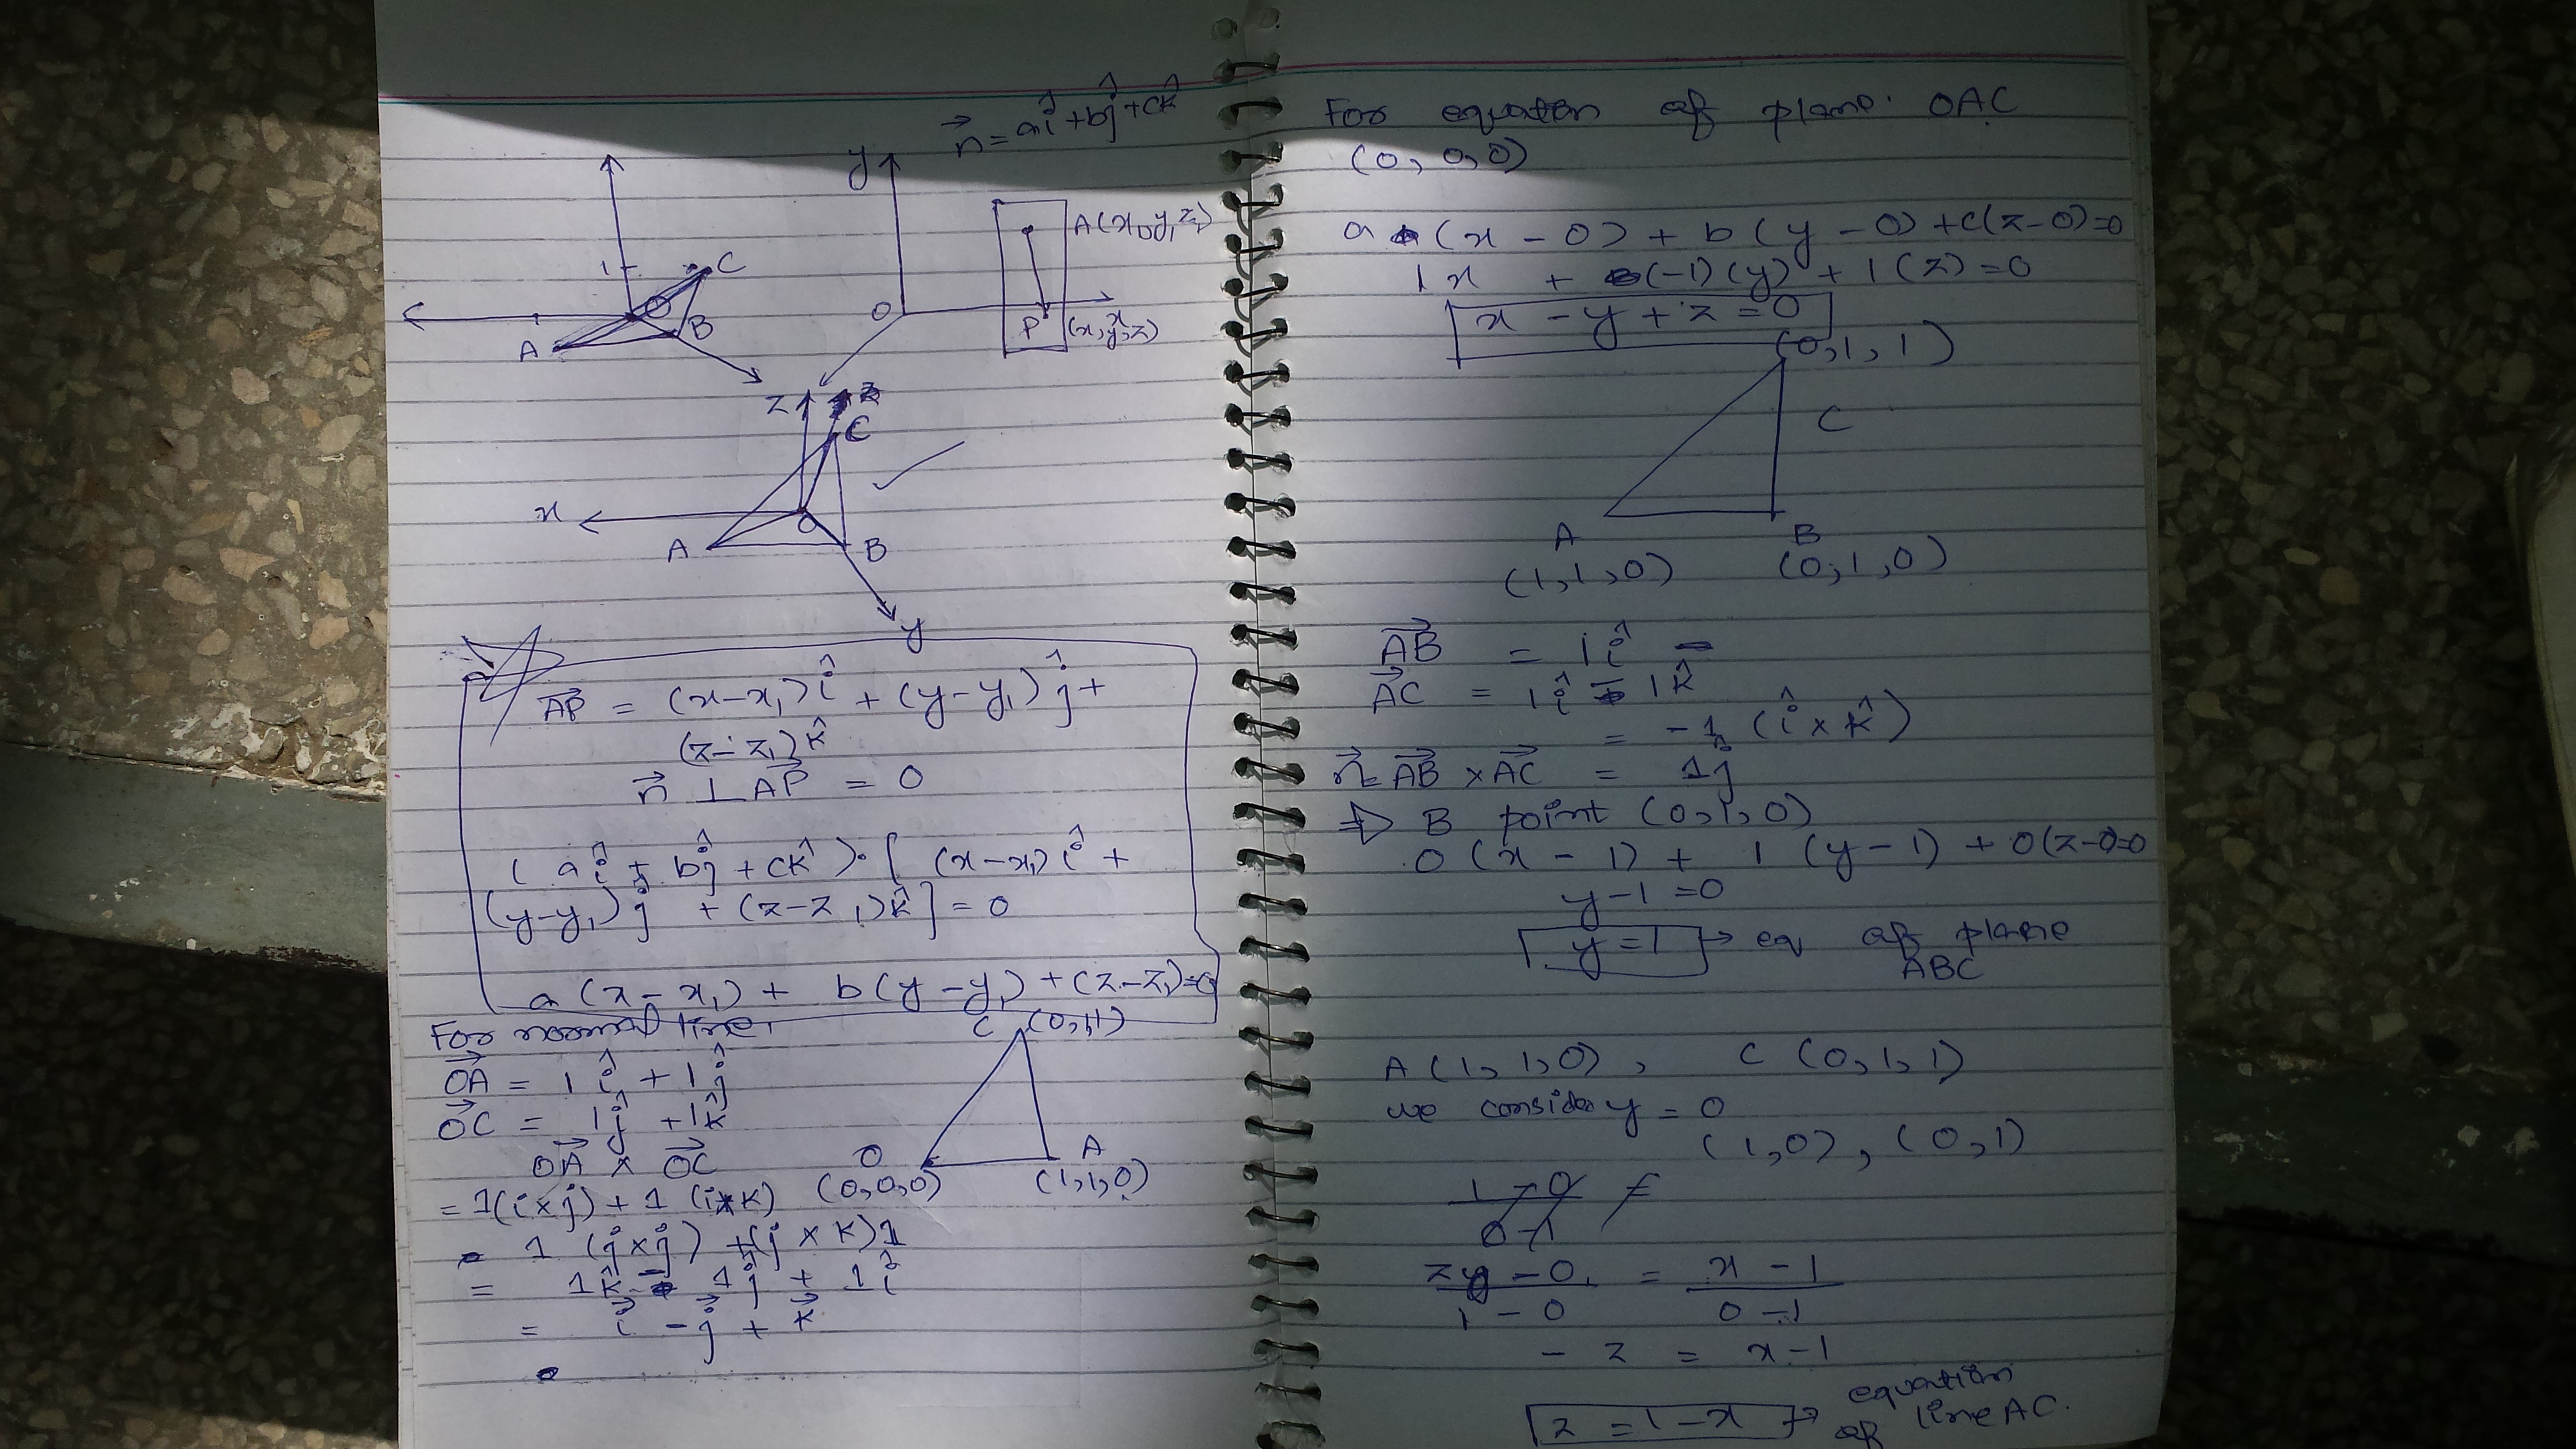 n⃗ = aî + bĵ + ck̂
y
A(x₁,y₁,z₁)
1
C
O
B
A
O
x
P (x,y,z)
z
z
C
x
O
A
B
y
AP⃗ = (x-x₁)î + (y-y₁)ĵ +
(z-z₁)k̂
n⃗ ⊥ AP⃗ = 0
(aî + bĵ + ck̂)·[(x-x₁)î +
(y-y₁)ĵ + (z-z₁)k̂] = 0
a(x-x₁) + b(y-y₁) + (z-z₁)=0
For normal line,
C (0,1,1)
OA⃗ = 1î + 1ĵ
OC⃗ = 1ĵ + 1k̂
OA⃗ × OC⃗
O
A
= 1(i×j) + 1(i×k)
(0,0,0)
(1,1,0)
1 (j×j) + (j×k)1
= 1k̂ - 1ĵ + 1î
= i⃗ - j⃗ + k⃗
For equation of plane OAC
(0,0,0)
a(x-0) + b(y-0) + c(z-0)=0
1x + (-1)(y) + 1(z) = 0
x - y + z = 0
(0,1,1)
C
A
B
(1,1,0)
(0,1,0)
AB⃗ = 1î
AC⃗ = 1î - 1k̂
= -1 (î × k̂)
n⃗ = AB⃗ × AC⃗ = 1ĵ
⇒ B point (0,1,0)
0(x-1) + 1(y-1) + 0(z-0)=0
y-1 = 0
y = 1 → eq of plane
ABC
A(1,1,0), C(0,1,1)
we consider y = 0
(1,0), (0,1)
1-0 =
0-1
z-0 / 1-0 = x-1 / 0-1
-z = x-1
z = 1-x → equation
of line AC.